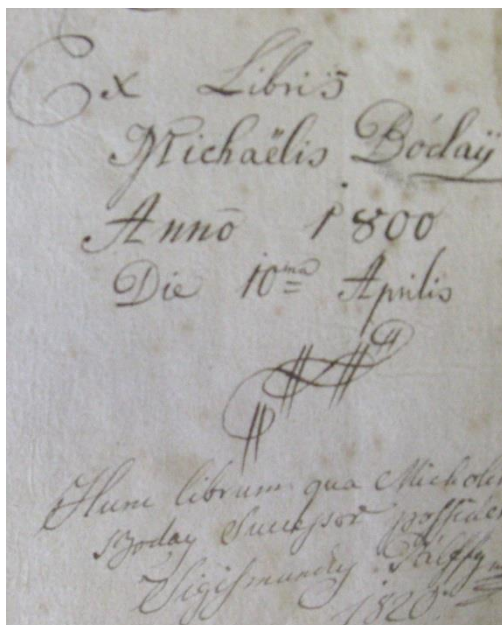 Ex Libris
Michaëlis Bódaÿ
Anno 1800
Die 10ma Aprilis
Hunc librum qua Michaeli
Boday Successor possidet
Sigismundus Pálffy
1820